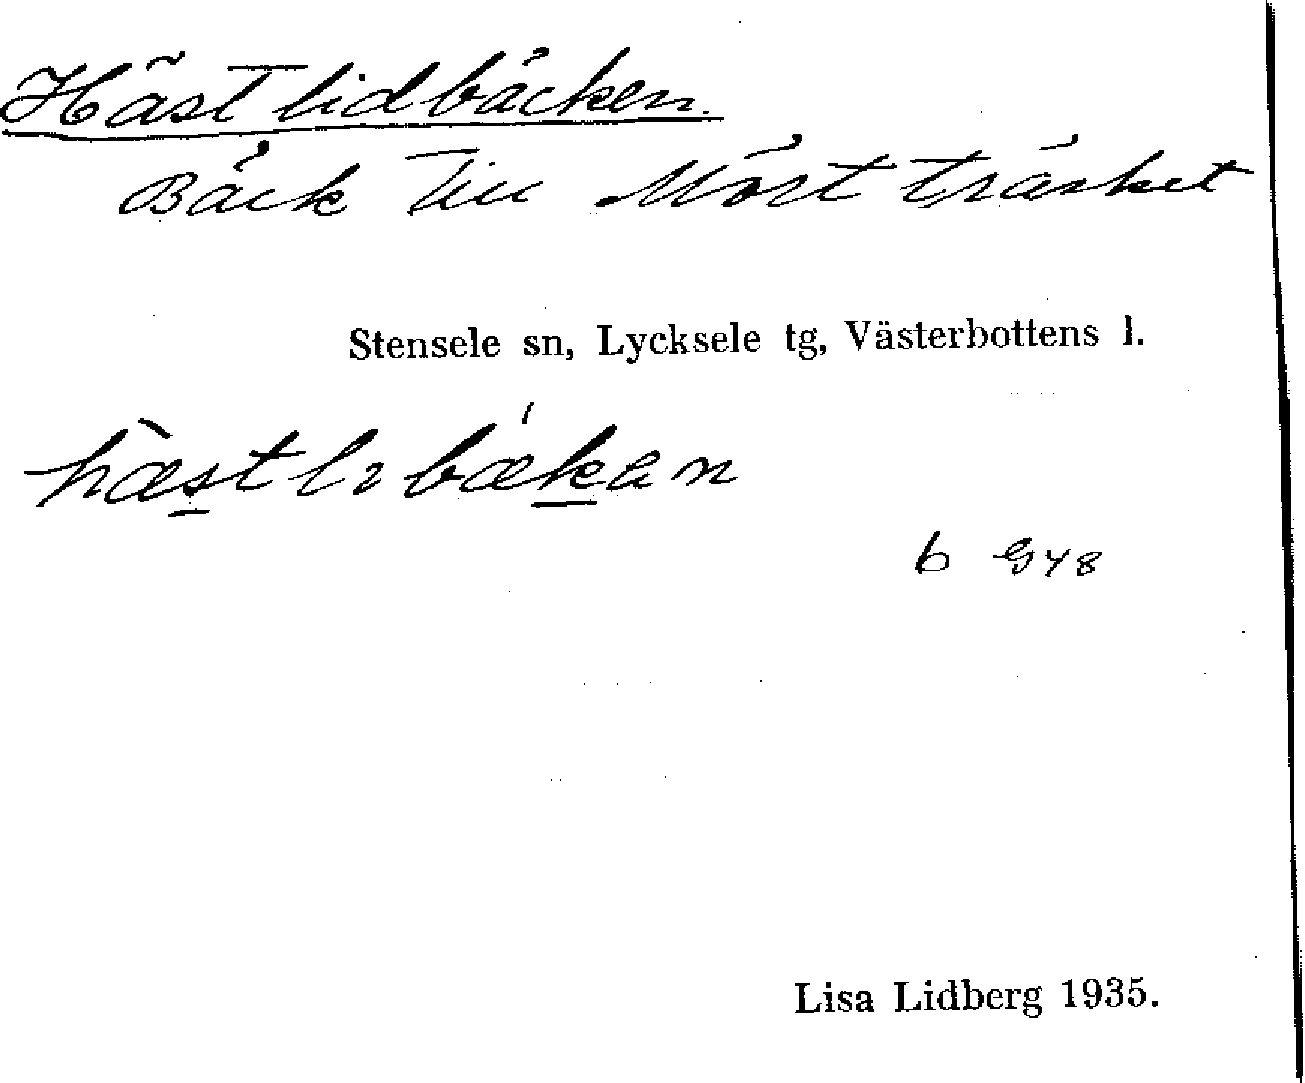 Hästlidbäcken.
Bäck till Mörtträsket
Stensele sn, Lycksele tg, Västerbottens l.
hæstlıbækan
b G48
Lisa Lidberg 1935.